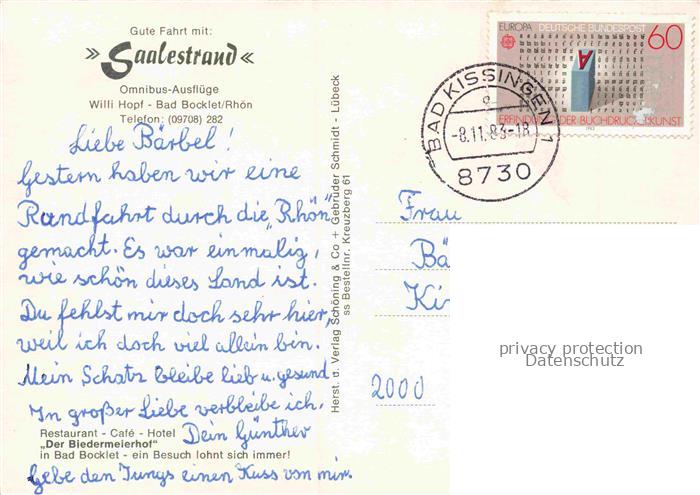 Gute Fahrt mit:
» Saalestrand «
Omnibus-Ausflüge
Willi Hopf - Bad Bocklet/Rhön
Telefon: (09708) 282
Liebe Bärbel!
Gestern haben wir eine
Rundfahrt durch die „Rhön"
gemacht. Es war einmalig,
wie schön dieses Land ist.
Du fehlst mir doch sehr hier,
weil ich doch viel allein bin.
Mein Schatz bleibe lieb u. gesund.
In großer Liebe verbleibe ich,
Dein Günther
Gebe den Jungs einen Kuss von mir.
Restaurant - Café - Hotel
„Der Biedermeierhof"
in Bad Bocklet - ein Besuch lohnt sich immer!
Herst. u. Verlag Schöning & Co + Gebrüder Schmidt - Lübeck
ss Bestellnr. Kreuzberg 61
EUROPA DEUTSCHE BUNDESPOST 60
A
ERFINDUNG DER BUCHDRUCKKUNST
1983
BAD KISSINGEN 1
-8.11.83-18
8730
Frau
Bä
Ki
2000
privacy protection
Datenschutz